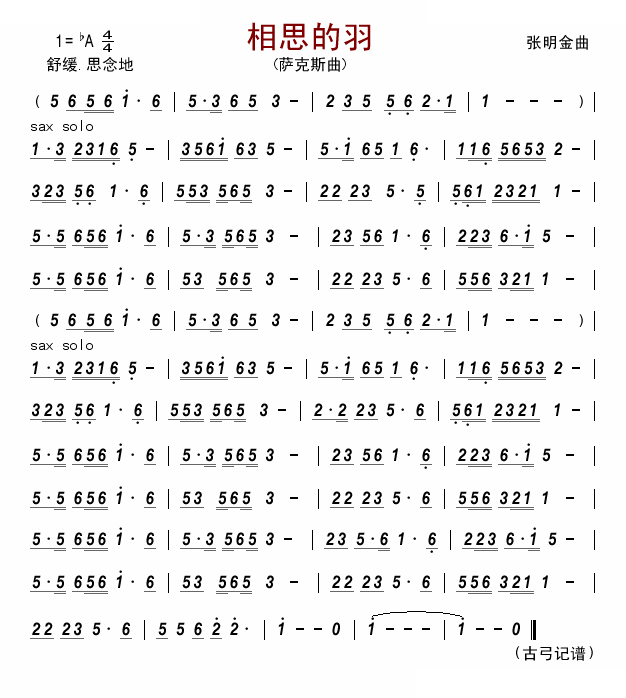 1= ♭A 4/4 相思的羽 张明金曲
舒缓.思念地 (萨克斯曲)
( 5 6 5 6 i · 6 | 5·3 6 5 3 － | 2 3 5 5 6 2·1 | 1 － － － ) |
sax solo
1·3 2316 5 － | 3561 63 5 － | 5·1 65 1 6· | 116 5653 2 － |
323 56 1·6 | 553 565 3 － | 22 23 5·5 | 561 2321 1 － |
5·5 656 1·6 | 5·3 565 3 － | 23 56 1·6 | 223 6·1 5 － |
5·5 656 1·6 | 53 565 3 － | 22 23 5·6 | 556 321 1 － |
( 5 6 5 6 1·6 | 5·3 6 5 3 － | 2 3 5 5 6 2·1 | 1 － － － ) |
sax solo
1·3 2316 5 － | 3561 63 5 － | 5·1 65 1 6· | 116 5653 2 － |
323 56 1·6 | 553 565 3 － | 2·2 23 5·6 | 561 2321 1 － |
5·5 656 1·6 | 5·3 565 3 － | 23 56 1·6 | 223 6·1 5 － |
5·5 656 1·6 | 53 565 3 － | 22 23 5·6 | 556 321 1 － |
5·5 656 1·6 | 5·3 565 3 － | 23 5·6 1·6 | 223 6·1 5 － |
5·5 656 1·6 | 53 565 3 － | 22 23 5·6 | 556 321 1 － |
22 23 5·6 | 5 5 6 2 2· | 1 － － 0 | 1 － － － | 1 － － 0 ‖
(古弓记谱)